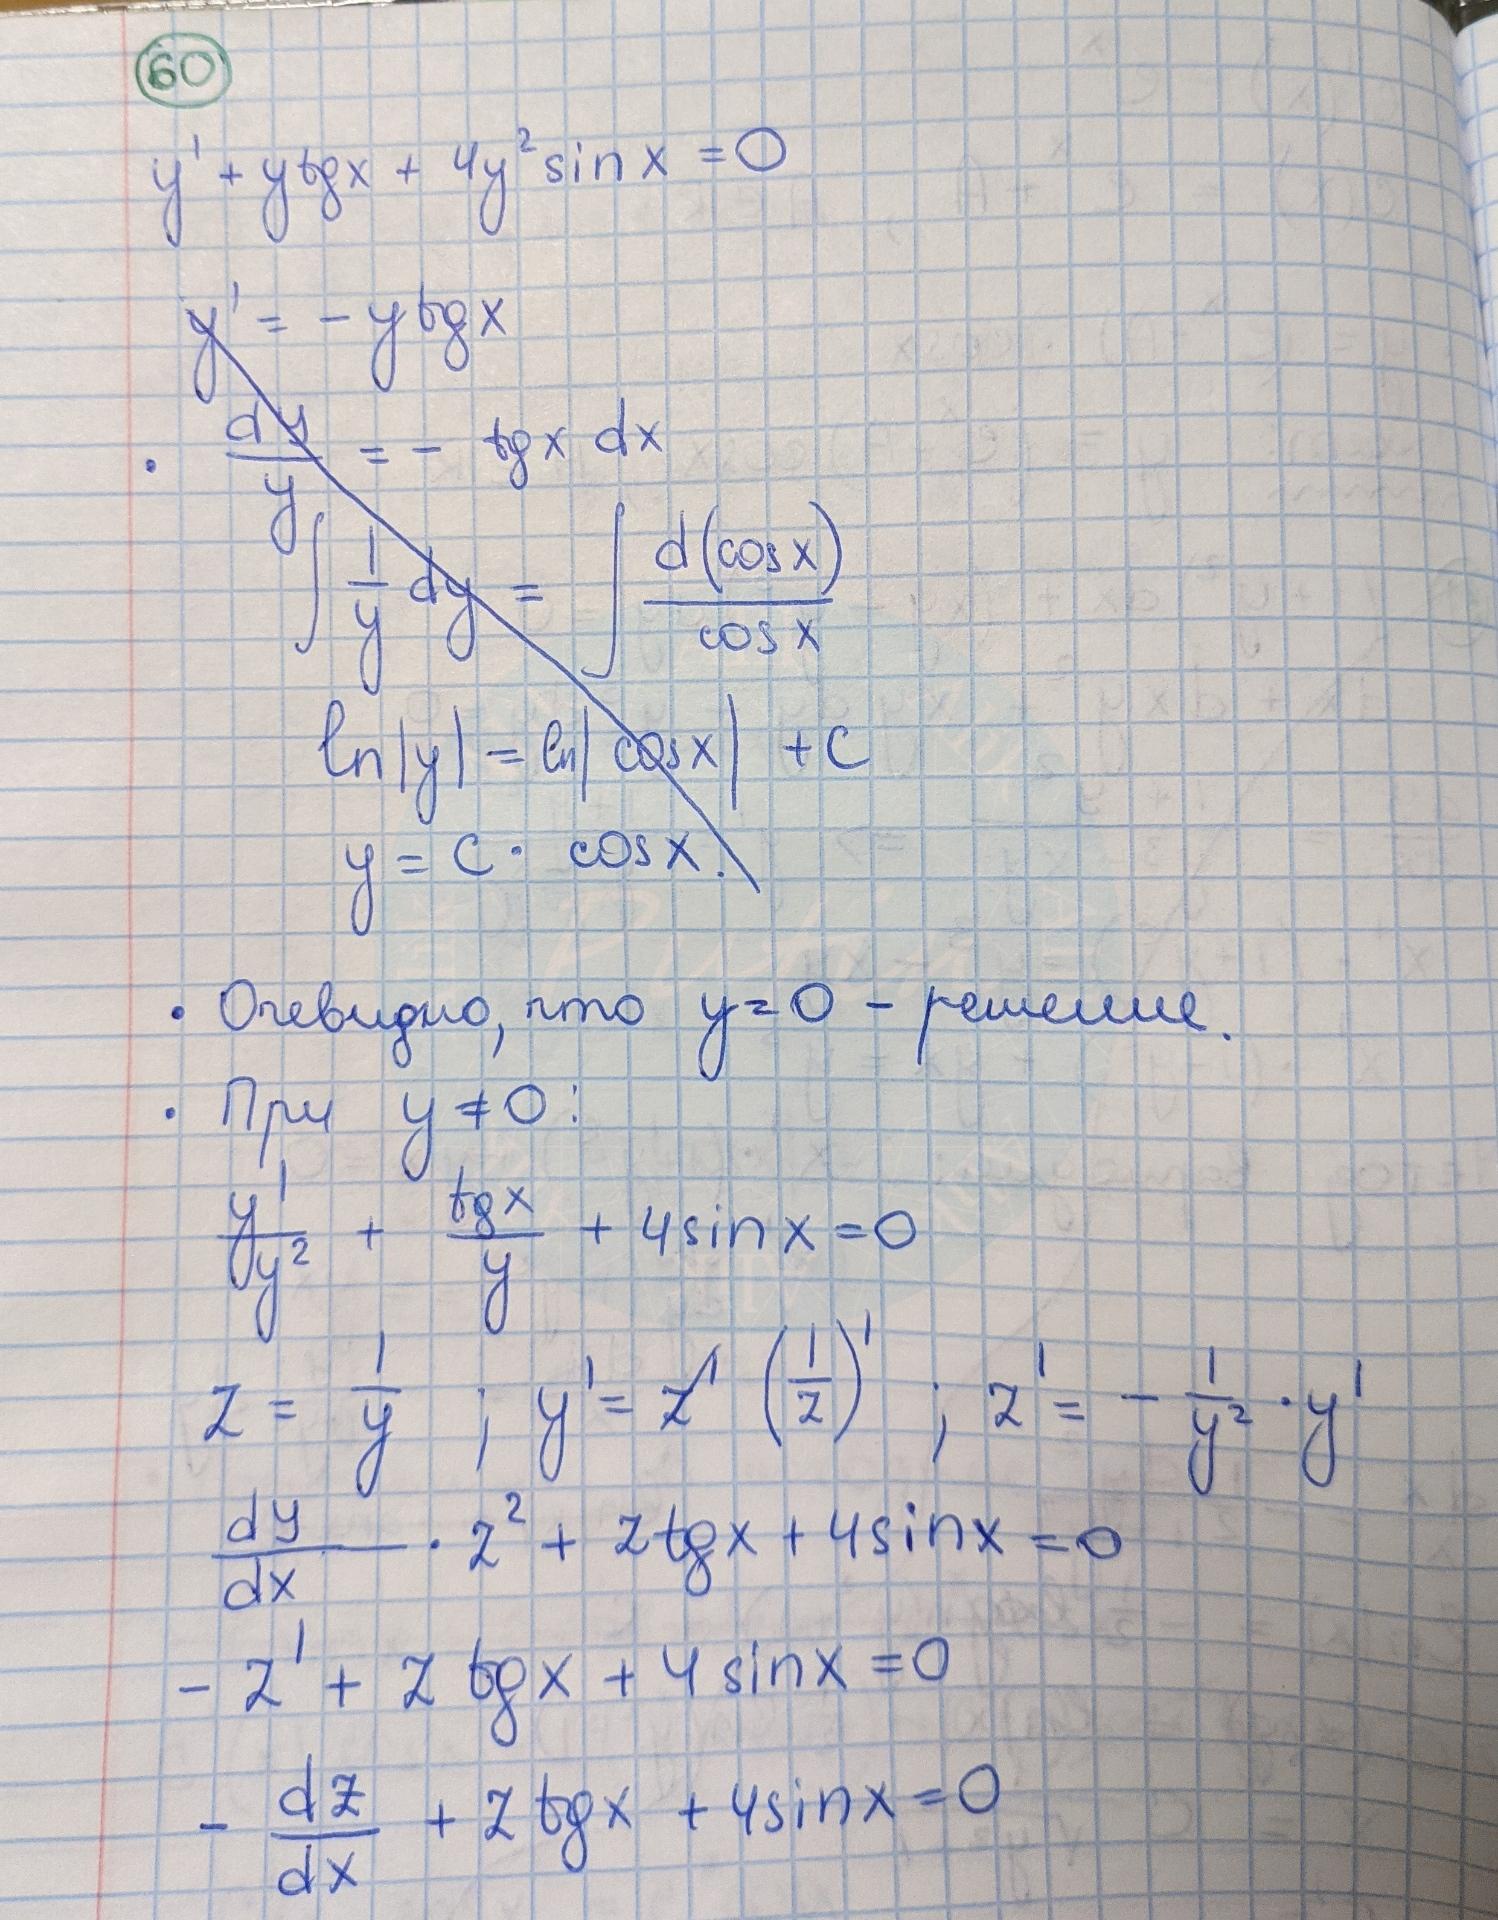 60
y' + y tg x + 4y² sin x = 0
y' = - y tg x
• dy/y = - tg x dx
∫ 1/y dy = ∫ d(cos x)/cos x
ln|y| = ln|cos x| + C
y = C · cos x.
• Очевидно, что y = 0 - решение.
• При y ≠ 0:
y'/y² + tg x/y + 4 sin x = 0
z = 1/y ; y' = z' (1/z)' ; z' = - 1/y² · y'
dy/dx · z² + z tg x + 4 sin x = 0
- z' + z tg x + 4 sin x = 0
- dz/dx + z tg x + 4 sin x = 0